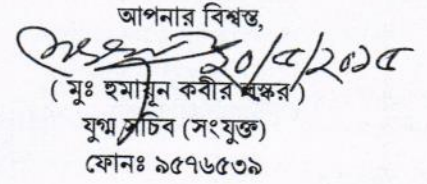 আপনার বিশ্বস্ত,
২০/৫/২০১৫
( মুঃ হুমায়ূন কবীর খস্কর )
যুগ্ম সচিব (সংযুক্ত)
ফোনঃ ৯৫৭৬৫৩৯